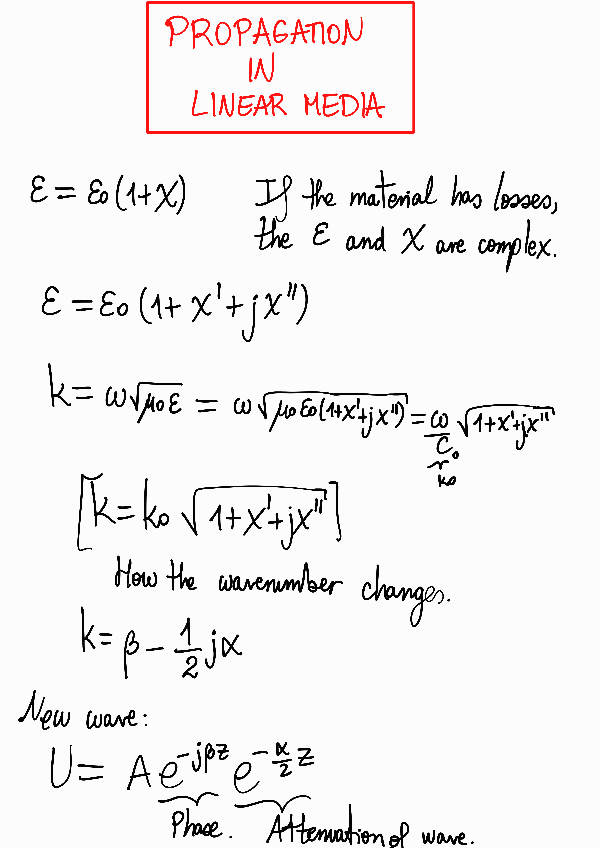 PROPAGATION
IN
LINEAR MEDIA
ε = ε₀(1+χ) If the material has losses,
the ε and χ are complex.
ε = ε₀(1+χ'+jχ'')
k = ω√(μ₀ε) = ω√(μ₀ε₀(1+χ'+jχ'')) = ω/C₀ √(1+χ'+jχ'')
k₀
[k = k₀ √(1+χ'+jχ'')]
How the wavenumber changes.
k = β - 1/2 jα
New wave:
U = A e^(-jβz) e^(-α/2 z)
Phase. Attenuation of wave.